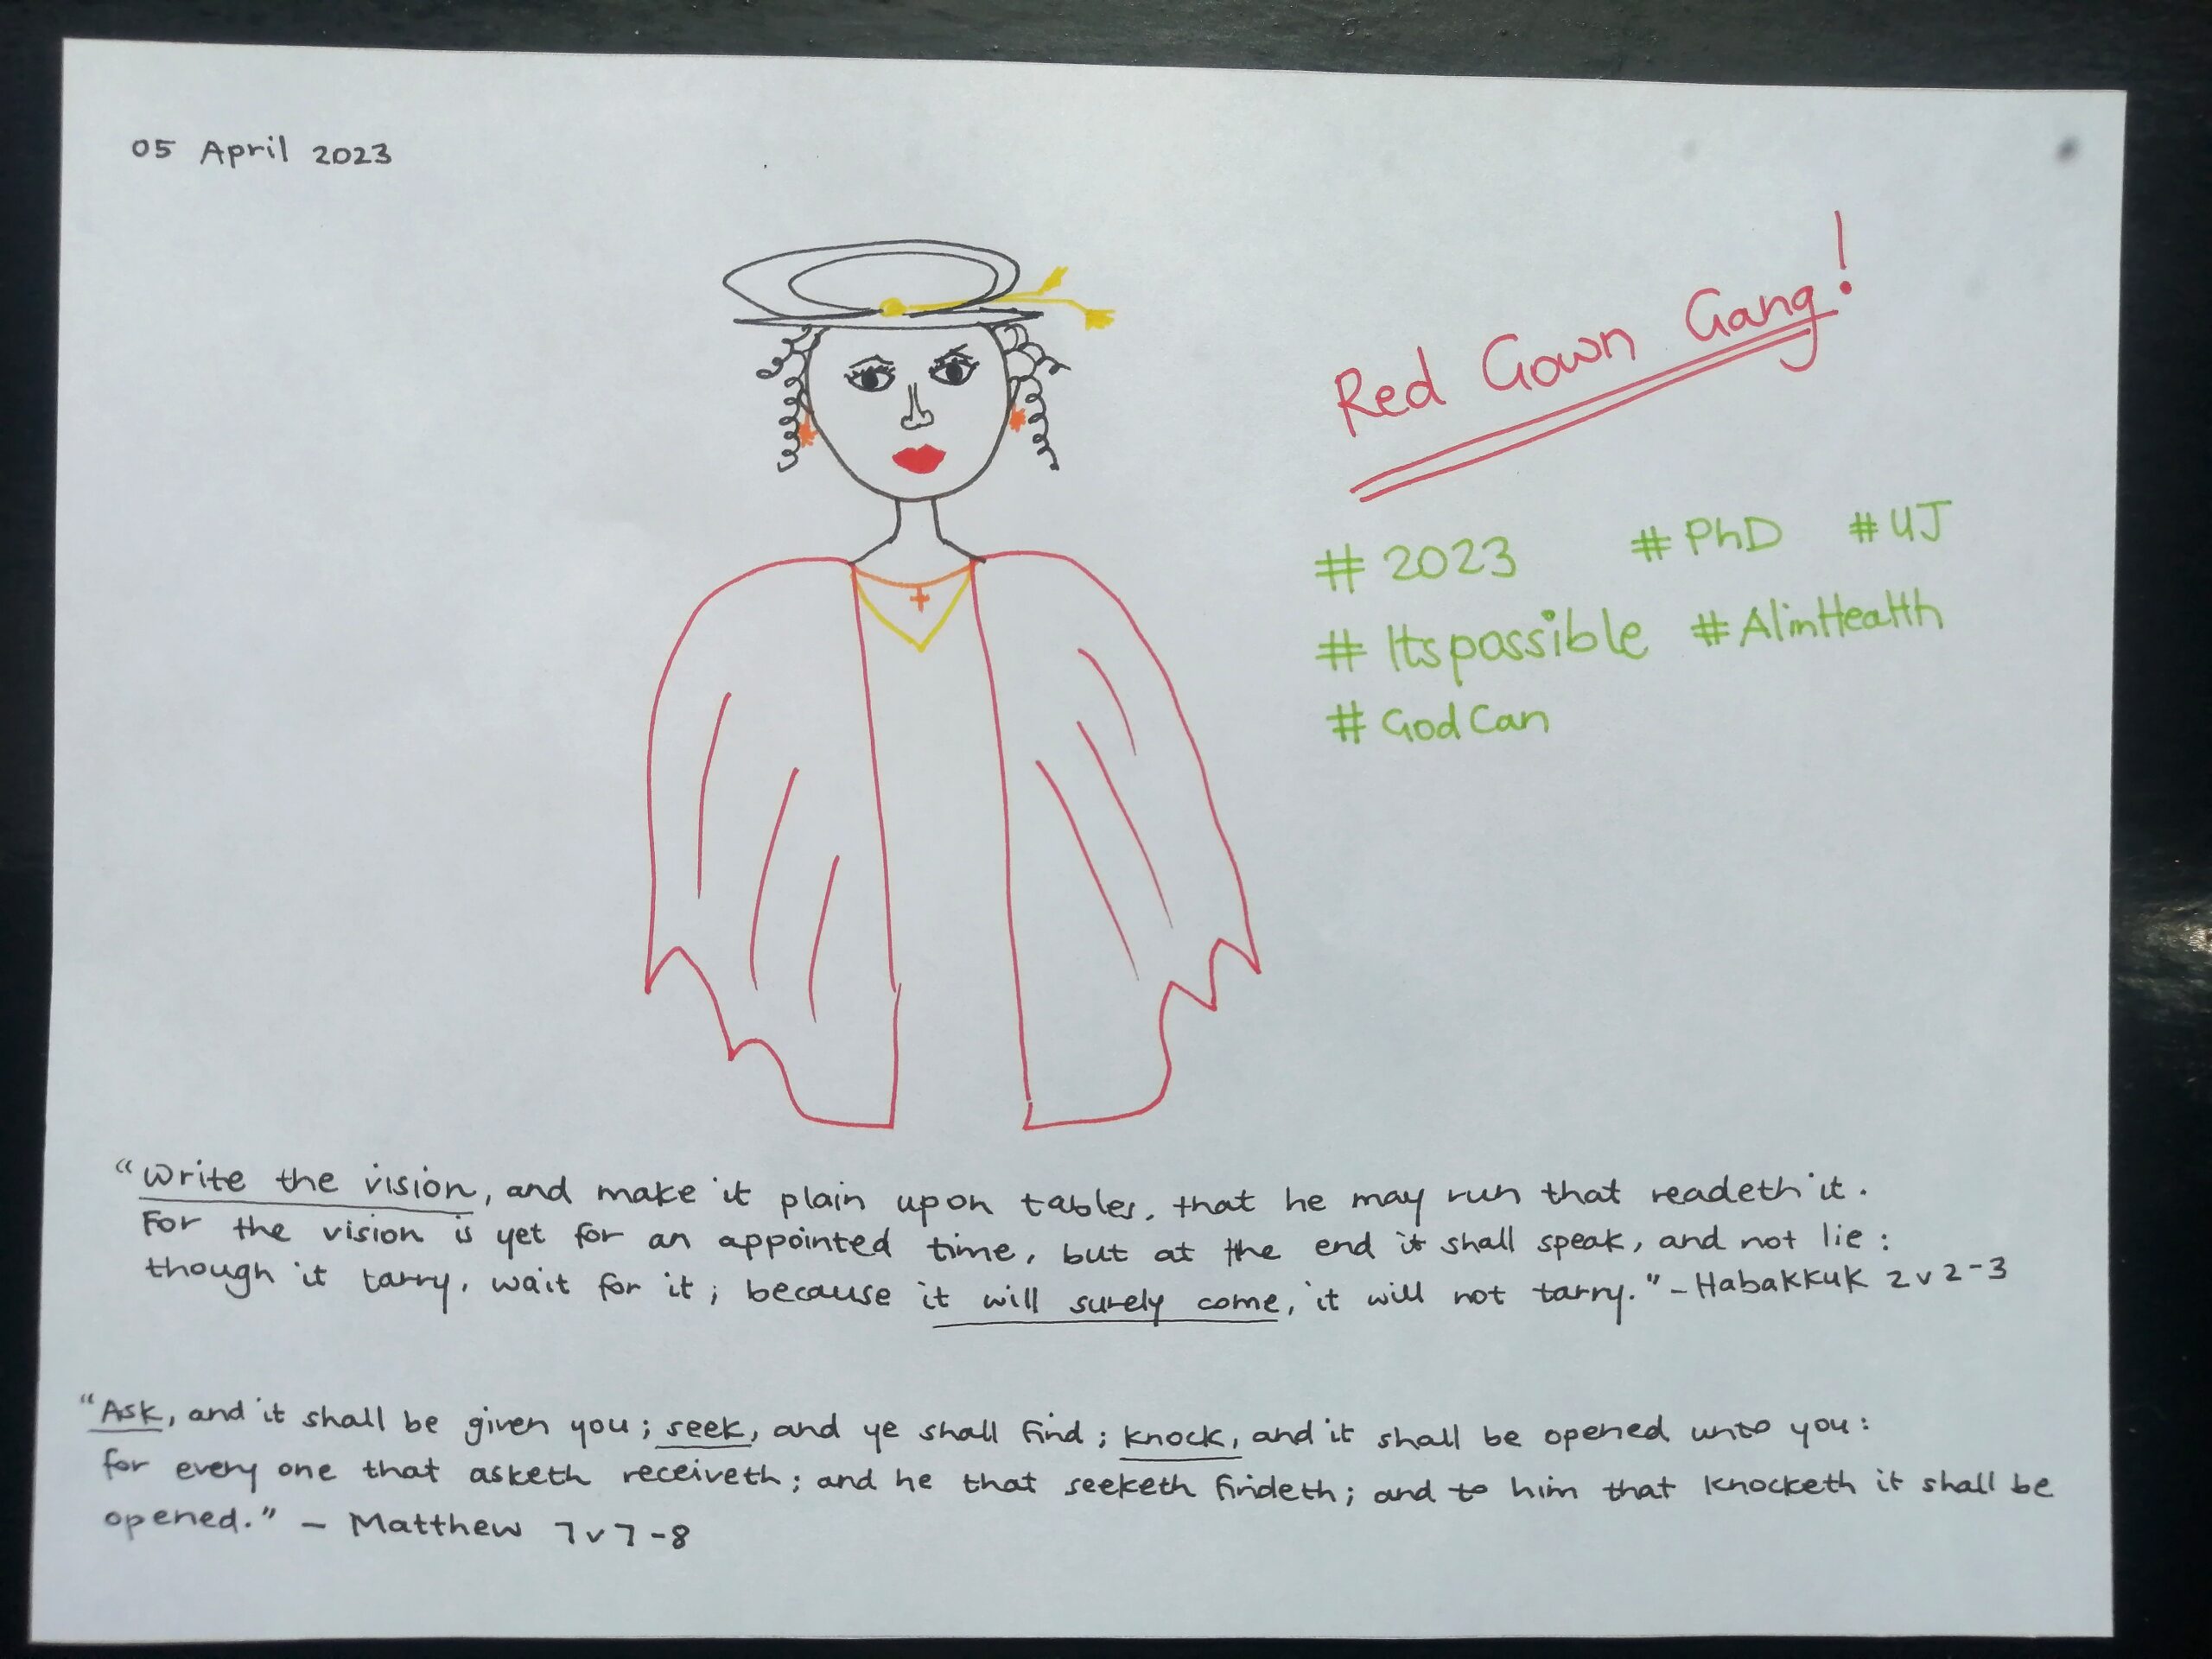 05 April 2023
Red Gown Gang!
# 2023 # PhD # UJ
# Itspossible # AIinHealth
# GodCan
"Write the vision, and make it plain upon tables, that he may run that readeth it.
For the vision is yet for an appointed time, but at the end it shall speak, and not lie:
though it tarry, wait for it; because it will surely come, it will not tarry." - Habakkuk 2v2-3
"Ask, and it shall be given you; seek, and ye shall find; knock, and it shall be opened unto you:
for every one that asketh receiveth; and he that seeketh findeth; and to him that knocketh it shall be
opened." - Matthew 7v7-8